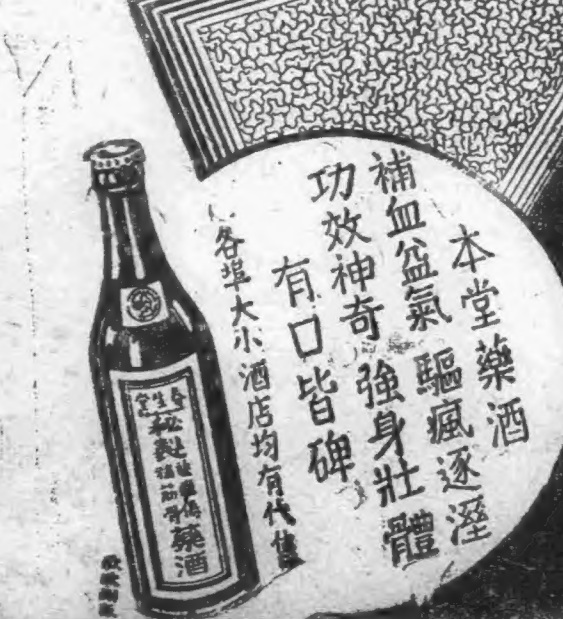 本堂藥酒
補血益氣 驅瘋逐溼
功效神奇 強身壯體
有口皆碑
各埠大小酒店均有代售
春生堂
秘製
筋骨
藥酒